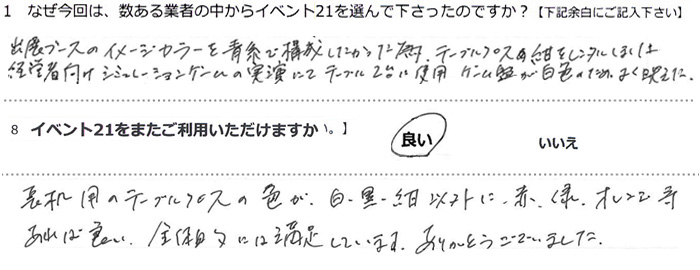 1 なぜ今回は、数ある業者の中からイベント21を選んで下さったのですか？【下記余白にご記入下さい】
出展ブースのイメージカラーを青系で構成したかった為、テーブルクロス紺をレンタルしました
経営者向けシミュレーションゲームの実演にてテーブル2台に使用 ゲーム盤が白色のため、よく映えた。
8 イベント21をまたご利用いただけますか。】 良い いいえ
長机用のテーブルクロスの色が、白・黒・紺以外に、赤、緑、オレンジ等
あれば良い。全体的には満足しています。ありがとうございました。